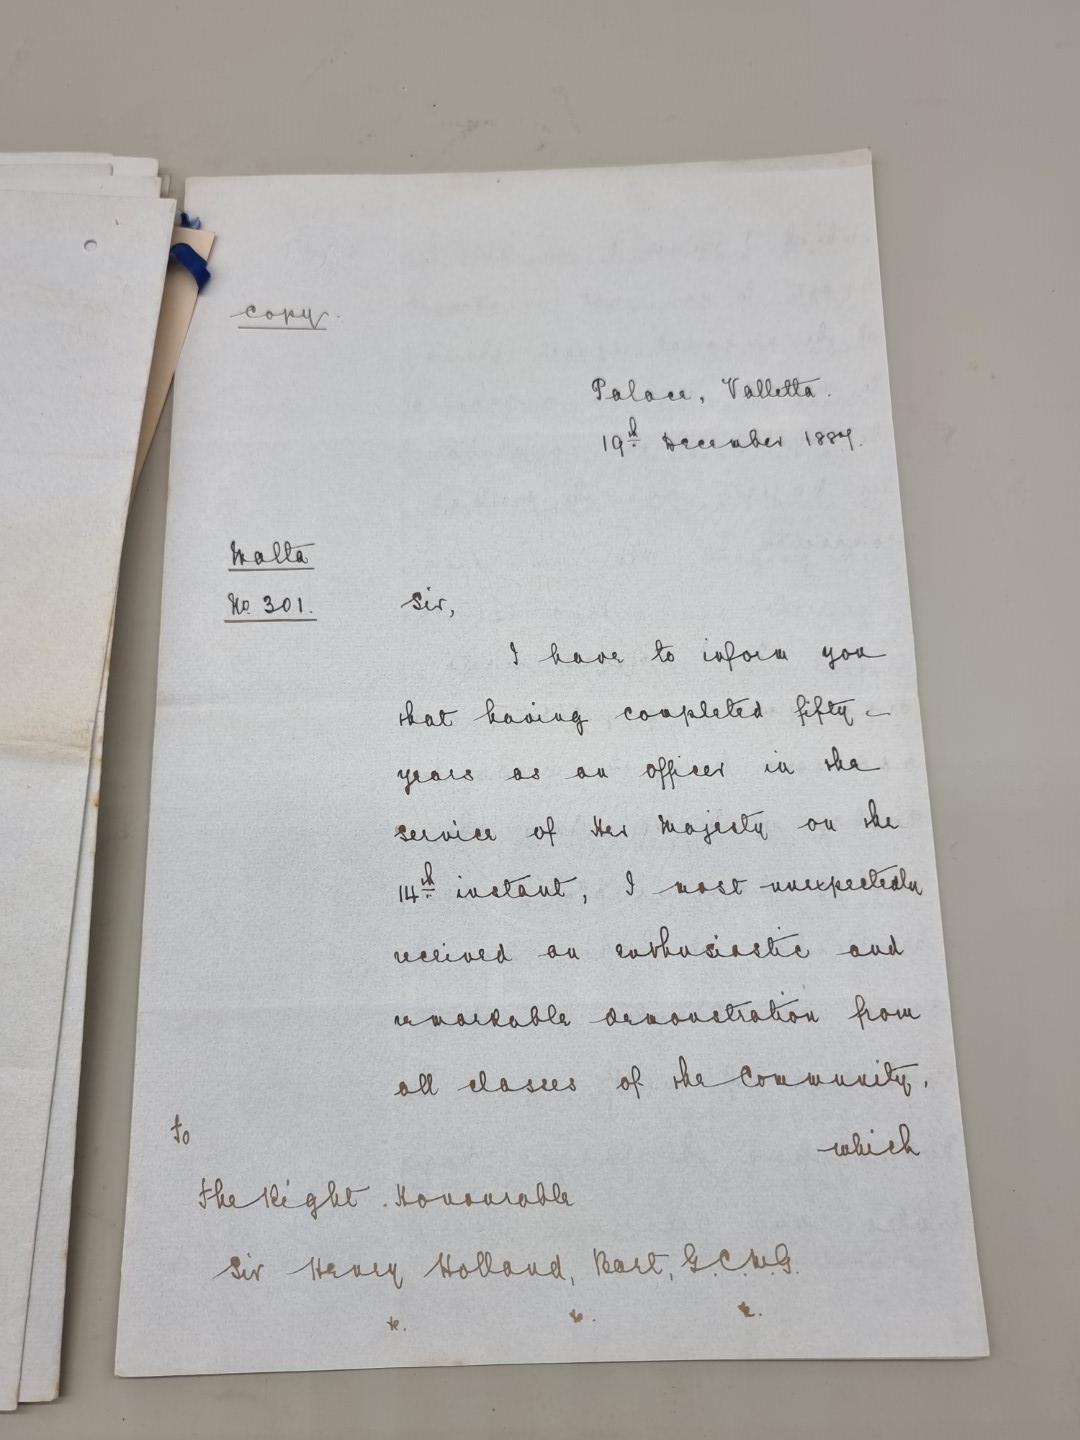 Copy.
Palace, Valletta.
19th December 1887.
Malta
No. 301.
Sir,
I have to inform you
that having completed fifty
years as an officer in the
service of Her Majesty on the
14th instant, I most unexpectedly
received an enthusiastic and
remarkable demonstration from
all classes of the Community,
which
To
The Right Honourable
Sir Henry Holland, Bart, G.C.M.G.
&c. &c. &c.